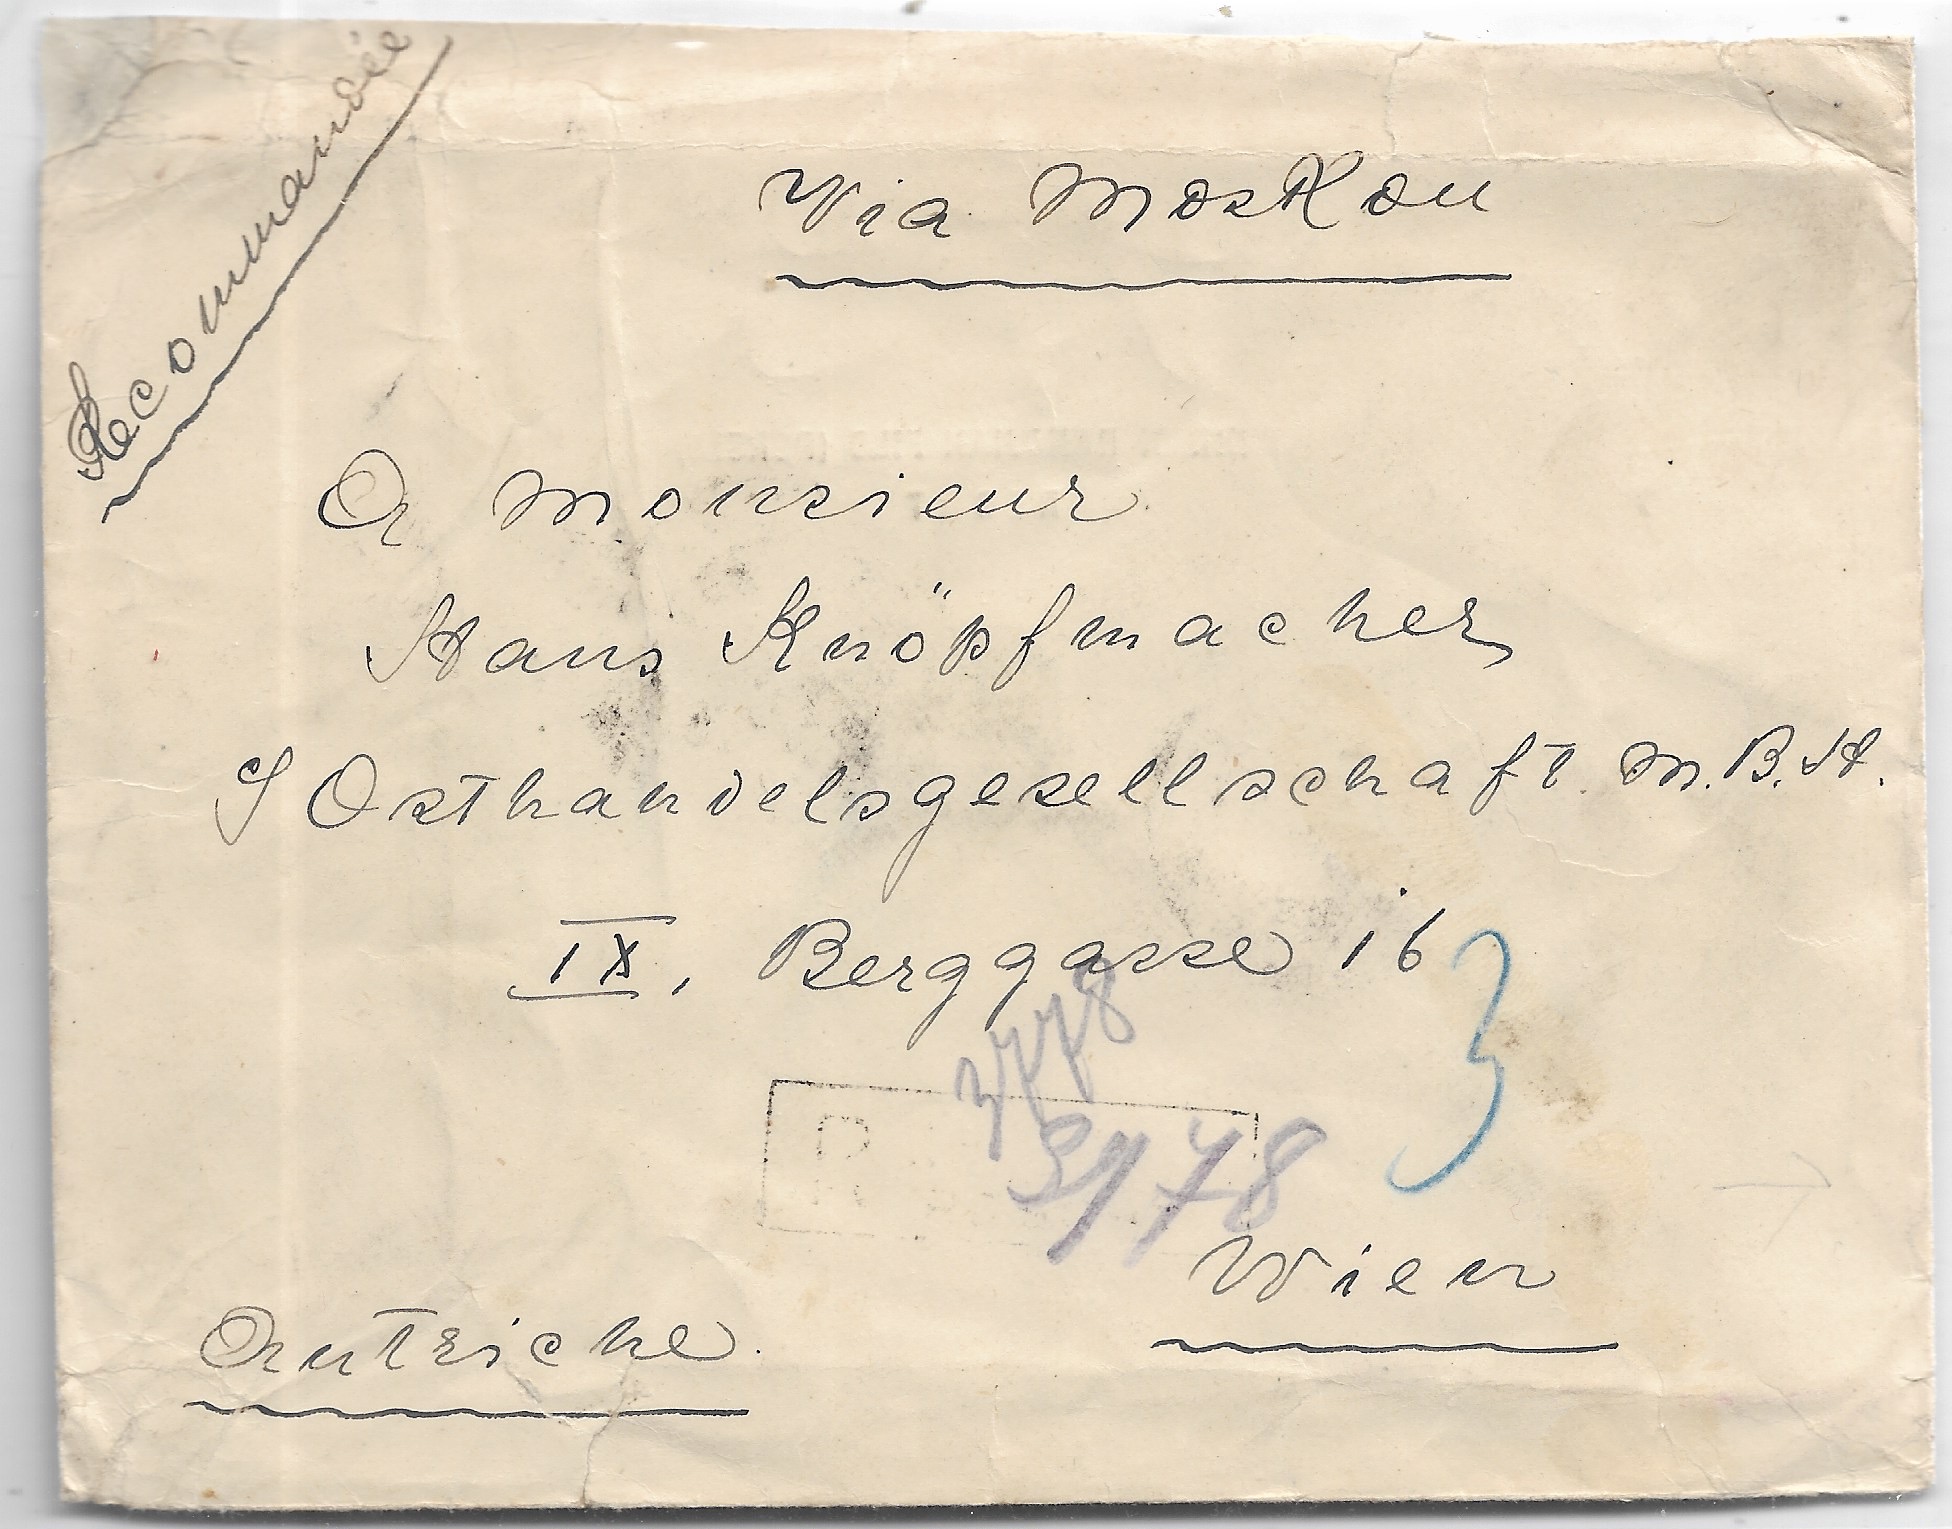 Recommandée
Via Moskou
A Monsieur
Hans Knöpfmacher
c/ Osthandelsgesellschaft M.B.H.
IX, Berggasse 16
3
778
R
3178
Wien
Autriche.